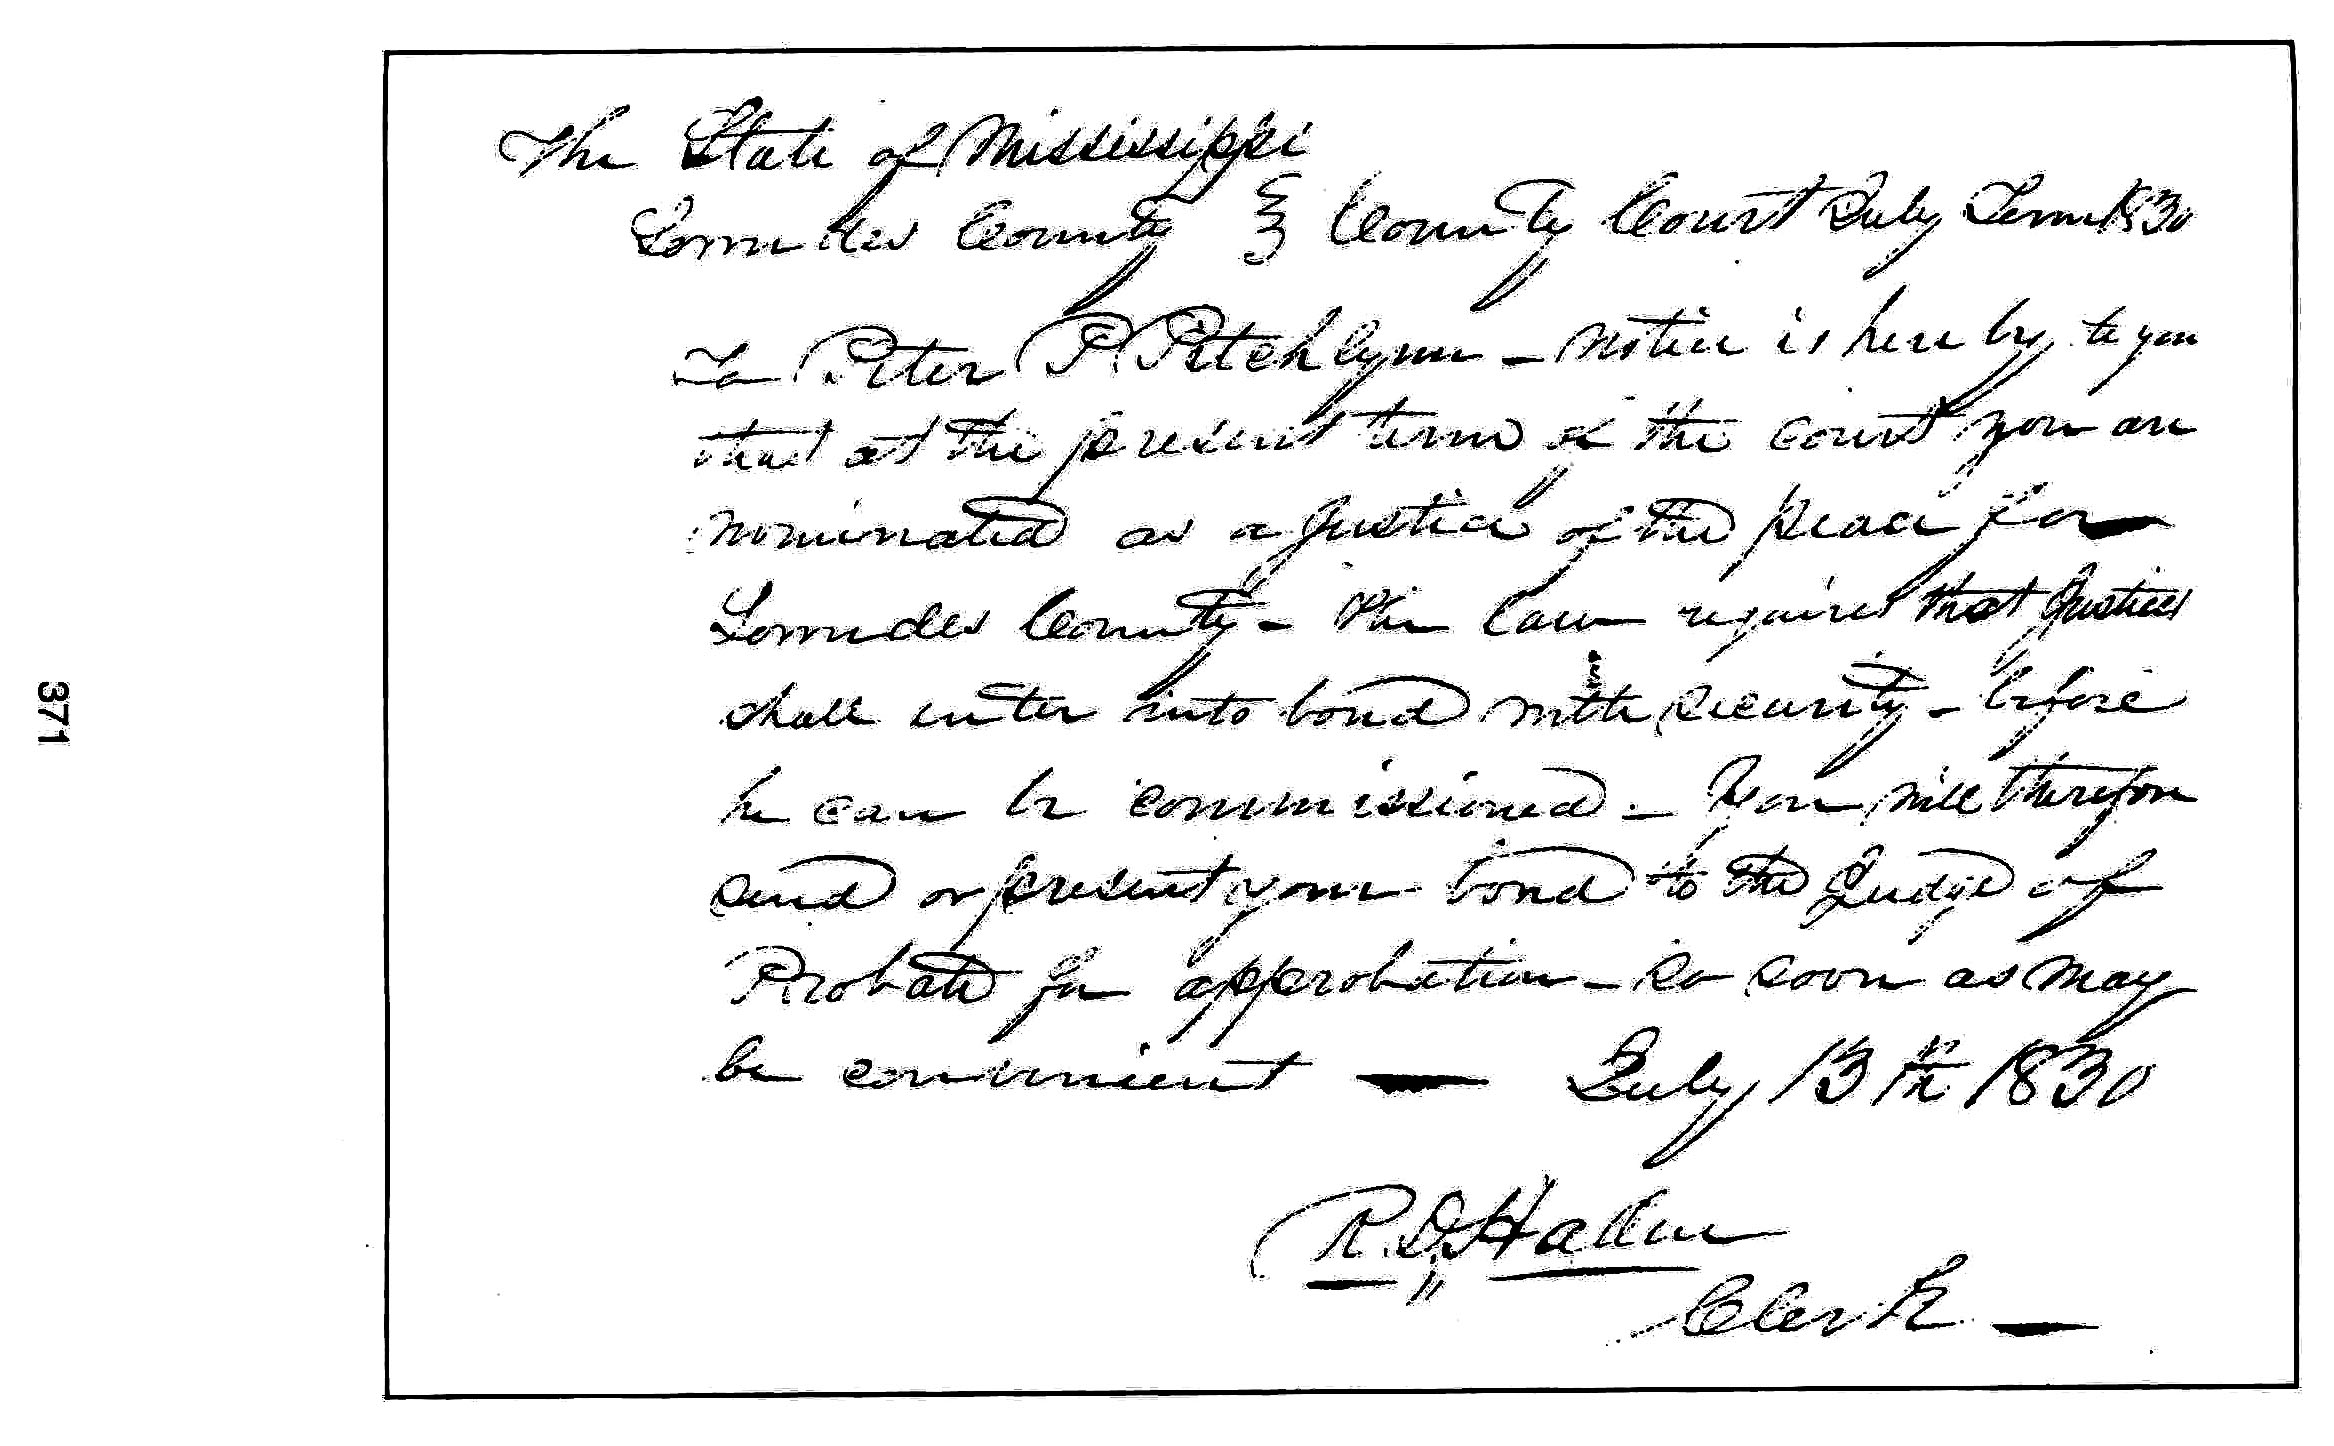 The State of Mississippi
Lowndes County } County Court July Term 1830
To Peter P Pitchlynn - Notice is hereby to you
that at the present term of the court you are
nominated as a Justice of the peace for
Lowndes County - The law requires that Justices
shall enter into bond with security - before
he can be commissioned - You will therefore
send or present your bond to the Judge of
Probate for approbation - so soon as may
be convenient — July 13th 1830
R. D. Haden
Clerk —
371